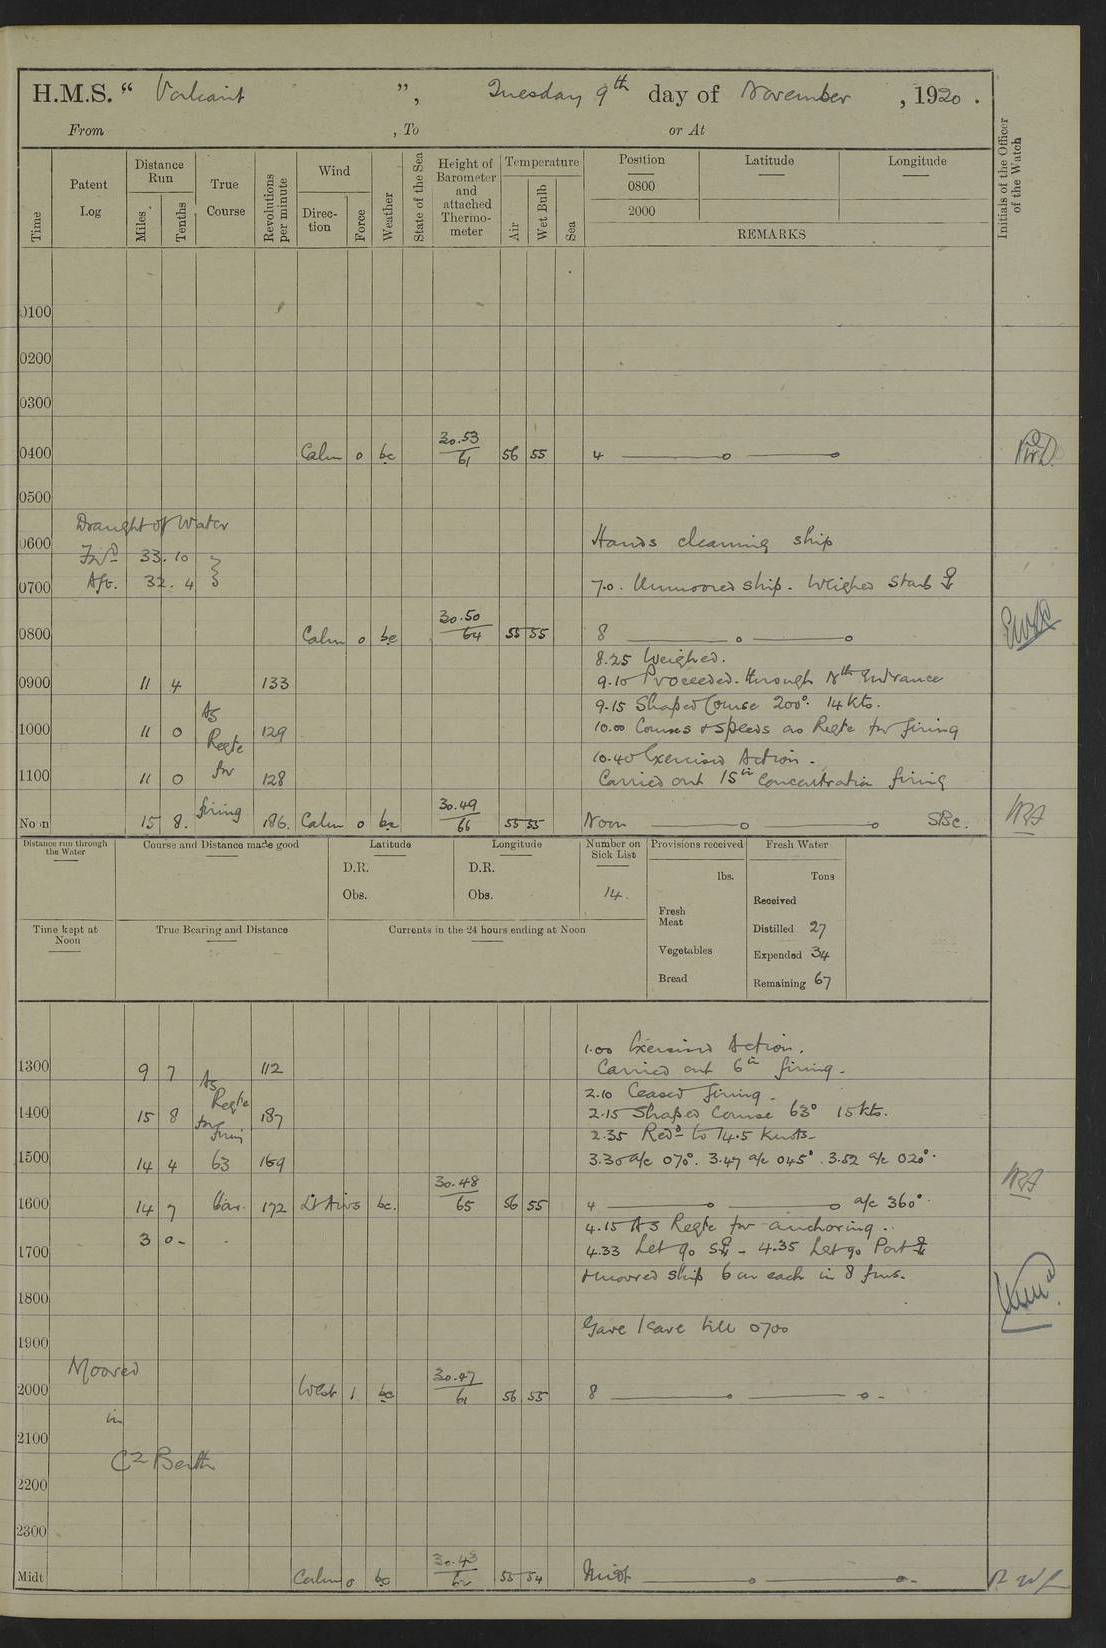 H.M.S. “ Valiant ”, Tuesday 9th day of November , 1920 .
From , To or At
Time
Patent Log
Distance Run
Miles
Tenths
True Course
Revolutions per minute
Wind
Direction
Force
Weather
State of the Sea
Height of Barometer and attached Thermometer
Temperature
Air
Wet Bulb
Sea
Position Latitude Longitude
0800
2000
REMARKS
Initials of the Officer of the Watch
0100
0200
0300
0400 Calm 0 bc 30.53 61 56 55 4
0500
Draught of Water
0600 Hands cleaning ship
Fwd 33.10
0700 Aft. 32.4 7.0. Unmoored ship. Weighed Starb
0800 Calm 0 bc 30.50 64 55 55 8
8.25 Weighed.
0900 11 4 133 9.10 Proceeded through Nth Entrance
9.15 Shaped Course 200°. 14 kts.
1000 11 0 As Reqte 129 10.00 Courses & speeds as Reqte for firing
10.40 Exercised Action.
1100 11 0 for 128 Carried out 15in Concentration firing
Noon 15 8. firing 186. Calm 0 bc 30.49 66 55 55 Noon SBc.
Distance run through the Water
Course and Distance made good
Latitude
D.R.
Obs.
Longitude
D.R.
Obs.
Number on Sick List
14.
Provisions received
lbs.
Fresh Meat
Vegetables
Bread
Fresh Water
Tons
Received
Distilled 27
Expended 34
Remaining 67
Time kept at Noon
True Bearing and Distance
Currents in the 24 hours ending at Noon
1.00 Exercised Action.
1300 9 7 112 Carried out 6in firing.
As Reqte
2.10 Ceased firing.
1400 15 8 for firing 187 2.15 Shaped Course 63° 15 kts.
2.35 Redd to 14.5 Knots
1500 14 4 63 169 3.30 a/c 070°. 3.47 a/c 045°. 3.52 a/c 020°.
1600 14 7 Var. 172 Lt Airs bc. 30.48 65 56 55 4 a/c 360°.
4.15 As Reqte for anchoring.
3 0
1700 4.33 Let go S - 4.35 Let go Port
& moored ship 6 on each in 8 fms.
1800
Gave leave till 0700
1900
Moored
2000 West 1 bc 30.47 61 56 55 8
in
2100
C2 Berth
2200
2300
Midt Calm 0 bc 30.43 62 55 54 Midt